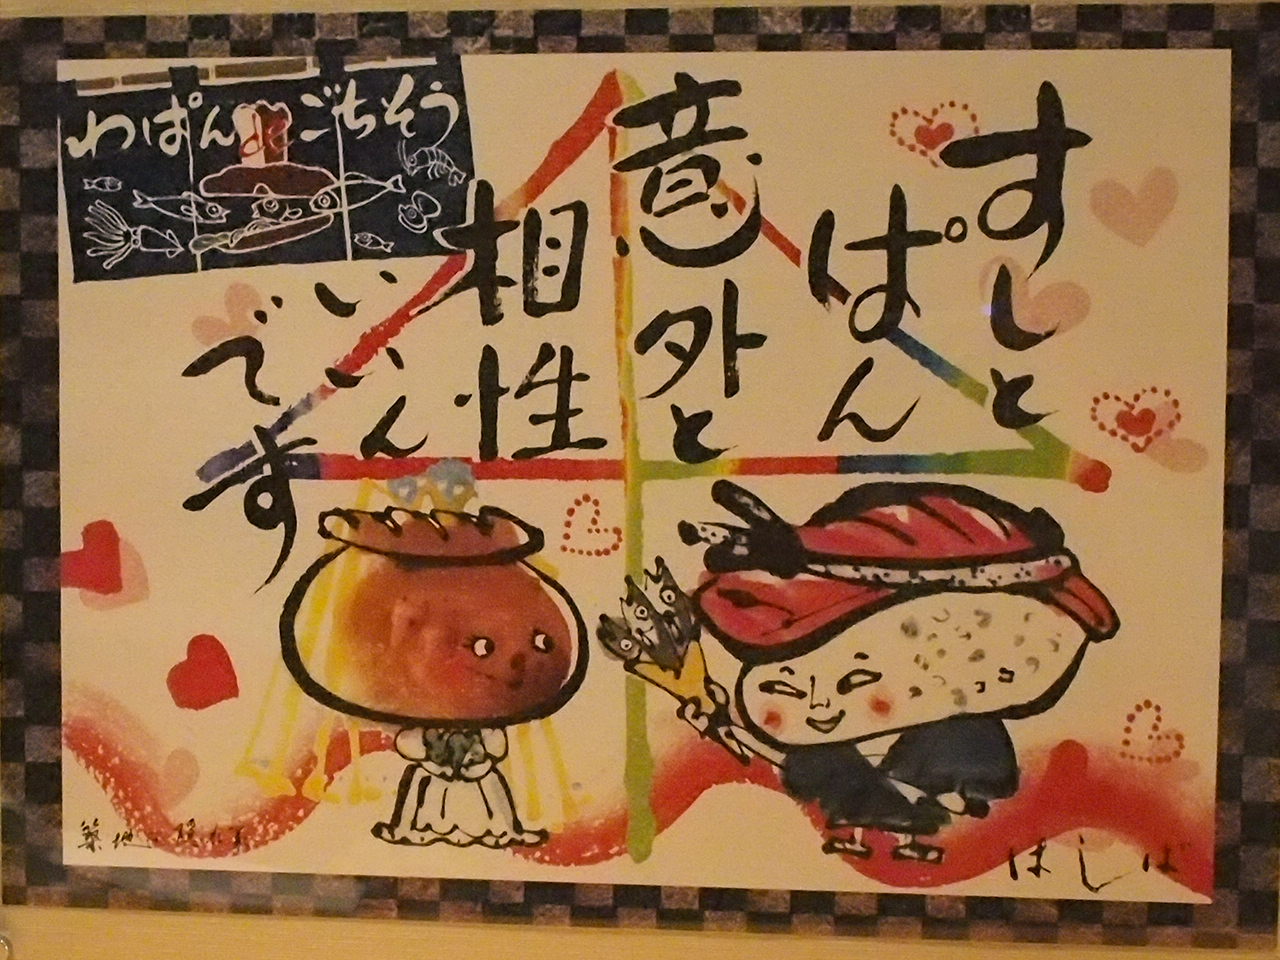 すしと
ぱん
意外と
相性
いいん
です
わぱんdeごちそう
築地の隠れ家
はしば